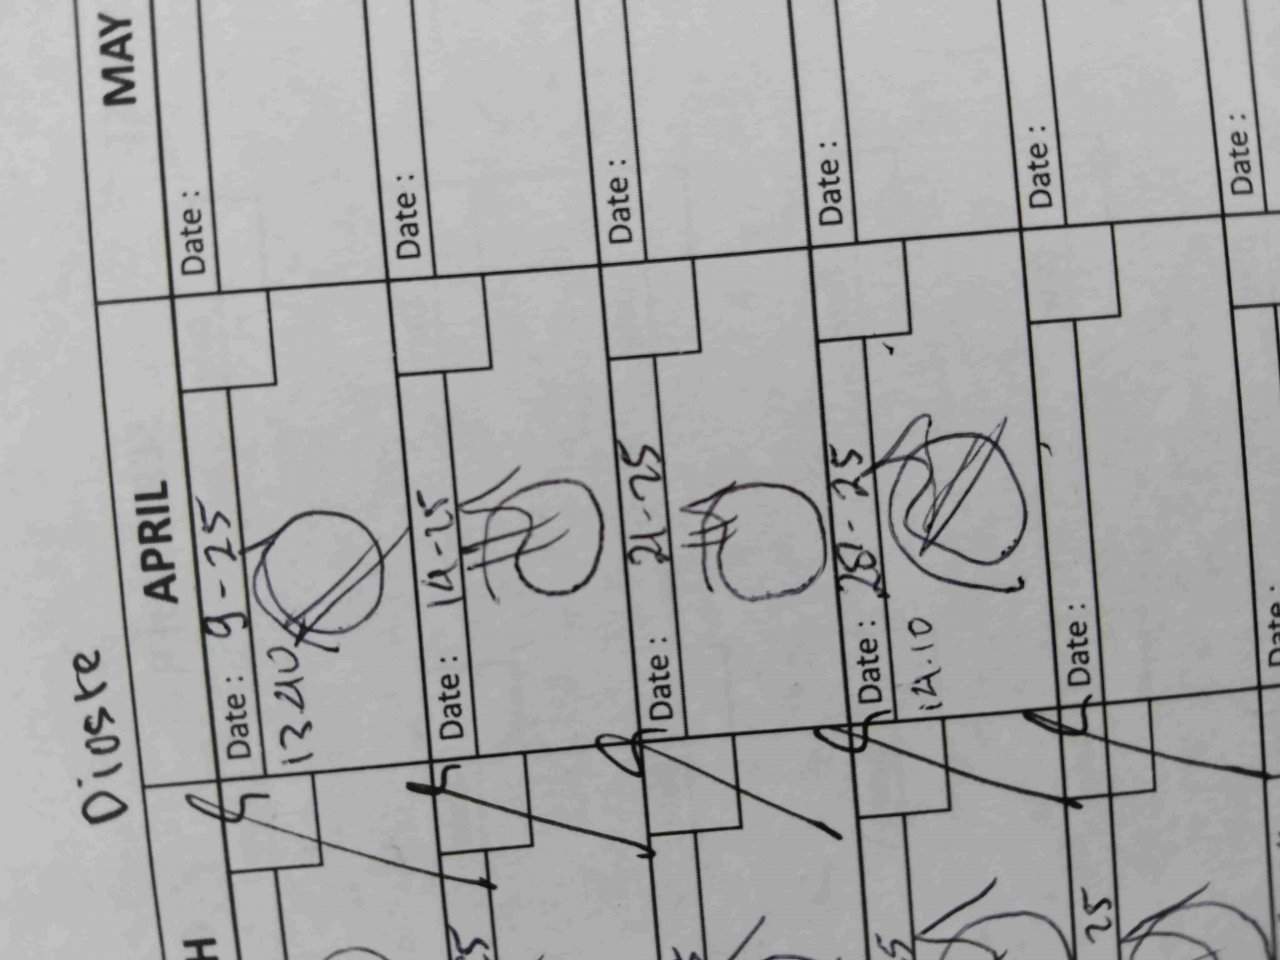 Dioste
H
APRIL
MAY
Date : 9-25
Date :
1340
Date : 14-25
Date :
Date : 21-25
Date :
Date : 28-25
Date :
14.10
Date :
Date :
25
Date :
Date :